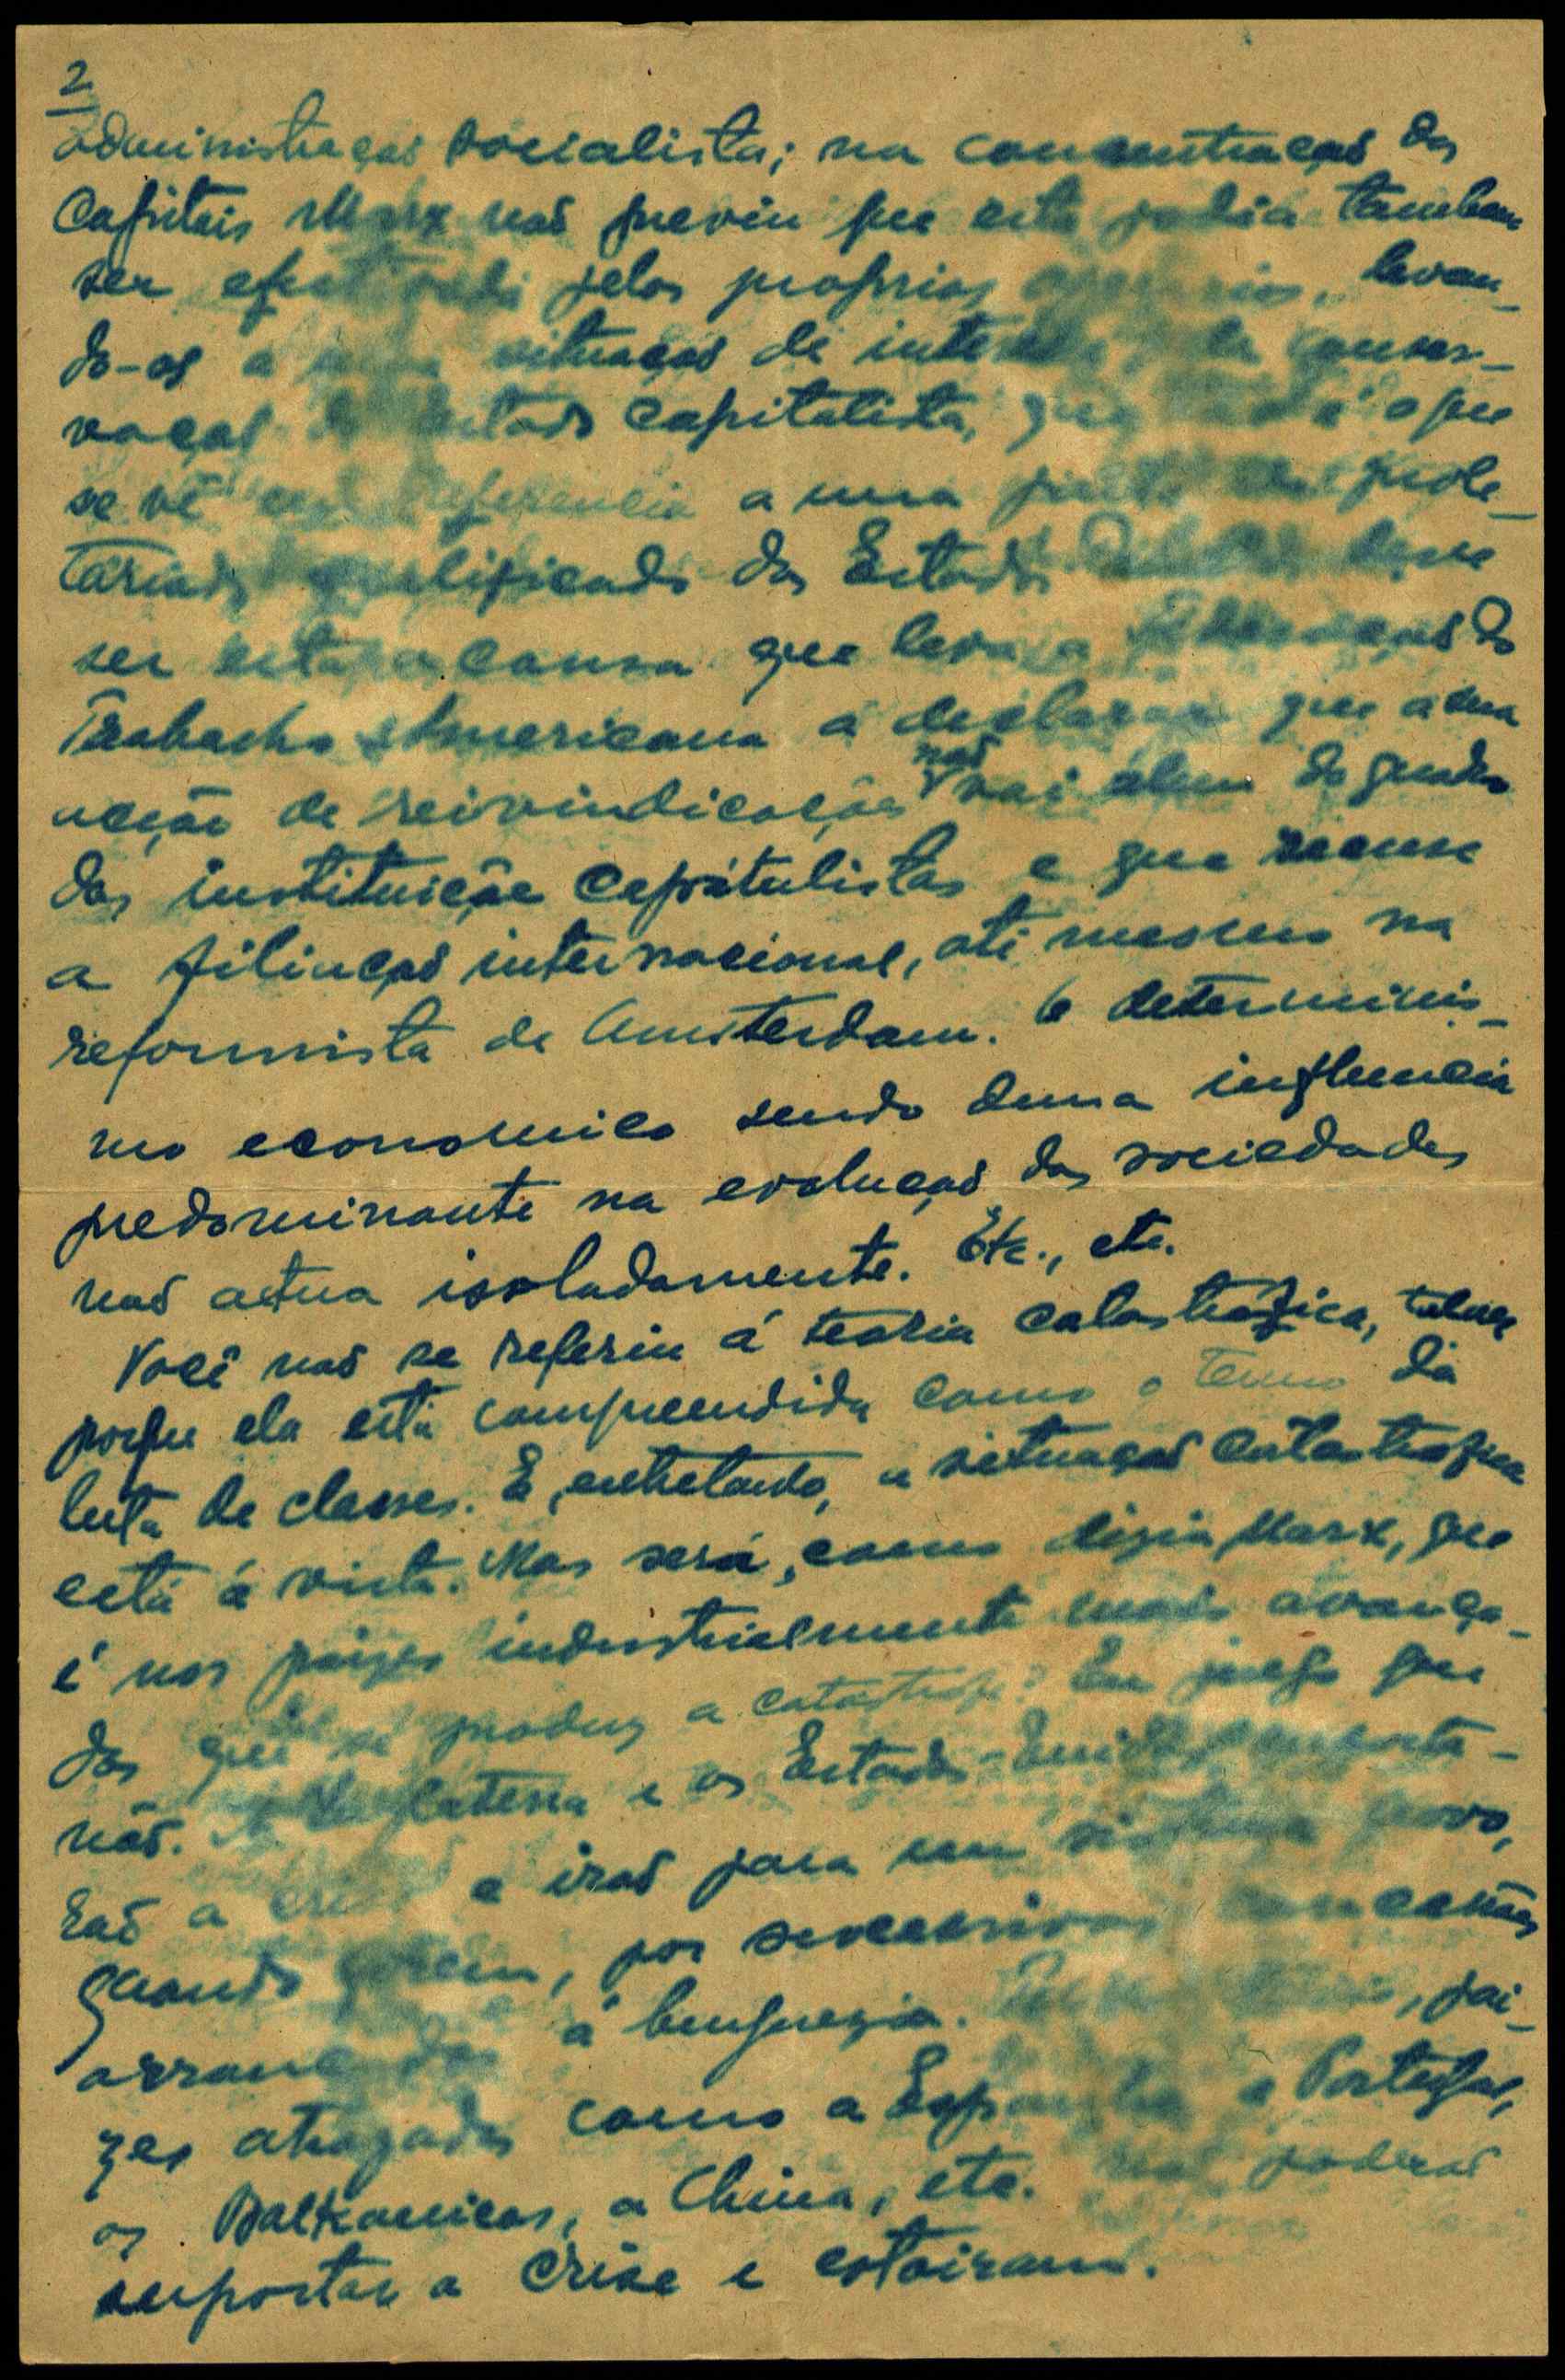 2
administração socialista; na concentração dos
Capitais Marx não previu que esta podia tambem
ser pelos proprios levan-
do-os a situação de conser-
vação capitalista, que o que
se vê referencia a uma prole-
tariado qualificado dos Estados
ser esta a causa que leva a do
Trabalho Americana a declarar que a sua
acção de reivindicação não vai alem do quadro
das instituição capitalistas e que recusa
a filiação internacional, até mesmo na
reformista de Amsterdam. O determinis-
mo economico sendo duma influencia
predominante na evolução das sociedades
não actua isoladamente. Etc., etc.
Você não se referiu á teoria catastrofica, talvez
porque ela está compreendida como o termo da
luta de classes. E, entretanto, a situação catastrofica
está á vista. Mas será, como dizia Marx, que
é nos paizes industrialmente mais avança-
dos que se produz a catastrofe? Eu julgo que
não. A Inglaterra e os Estados-Unidos suporta-
rão a crise e irão para um sistema novo,
quando por sucessivas concessões
arrancadas á burguezia. pai-
zes atrazados como a Espanha e Portugal,
os Balkanicos, a China, etc. não poderão
suportar a crise e estoiram.